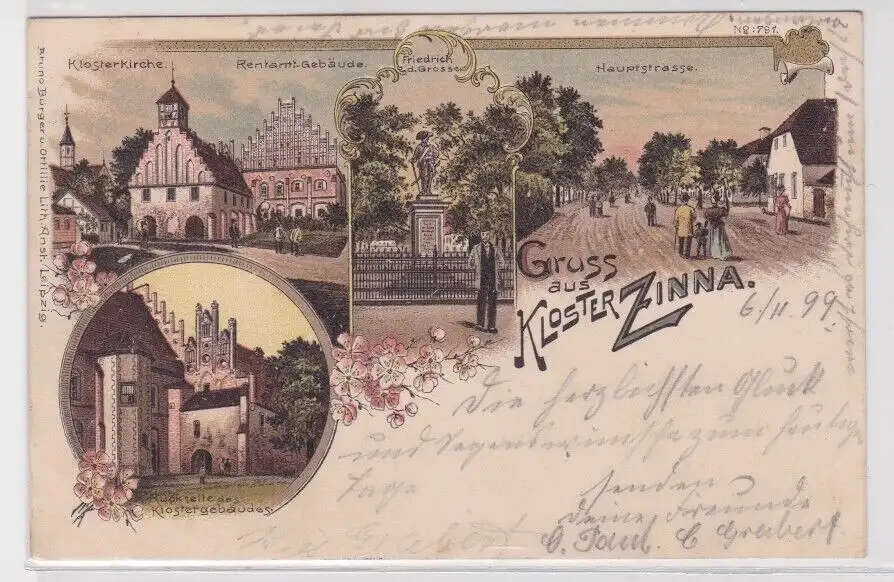 No: 791.
Klosterkirche.
Rentamt-Gebäude.
Friedrich
d. Grosse
Hauptstrasse.
Bruno Bürger u. Ottilie Lith. Anst. Leipzig.
Gruss
aus
KLOSTER ZINNA.
6/11. 99.
Rückseite des
Klostergebäudes
Die herzlichsten Glück
und Segenswünsche zum heutigen
Tage
senden
deine Freunde
O. Paul. C Grabert